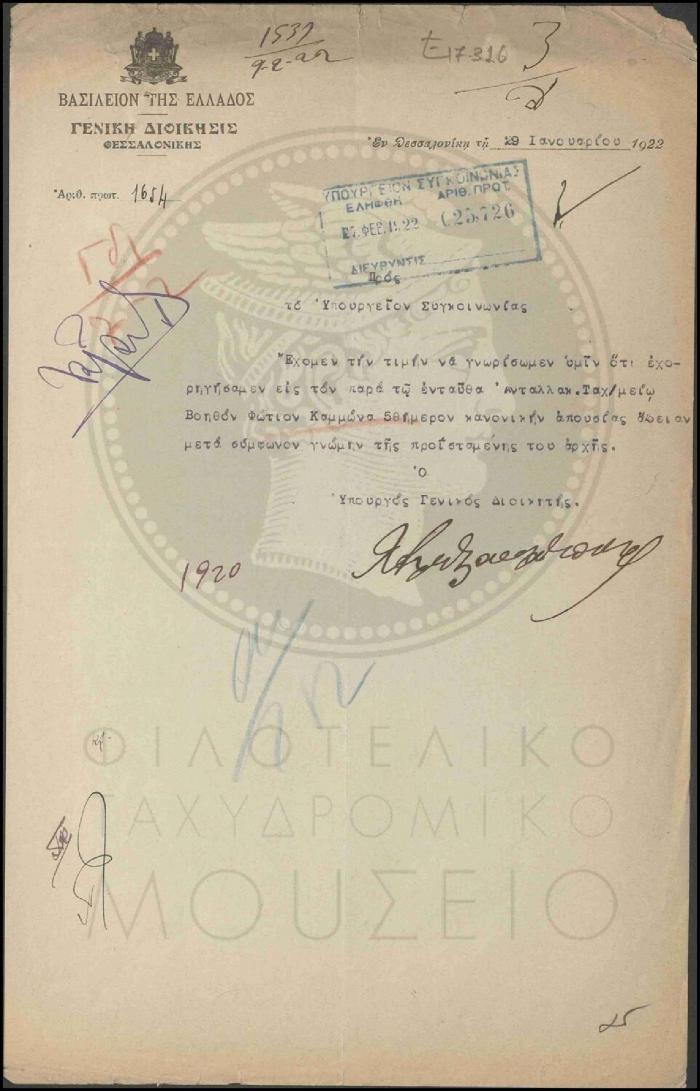 1537
9-2-22
t-17-326
3
2
ΒΑΣΙΛΕΙΟΝ ΤΗΣ ΕΛΛΑΔΟΣ
ΓΕΝΙΚΗ ΔΙΟΙΚΗΣΙΣ
ΘΕΣΣΑΛΟΝΙΚΗΣ
Ἐν Θεσσαλονίκῃ τῇ 29 Ιανουαρίου 1922
Ἀριθ. πρωτ. 1654
ΥΠΟΥΡΓΕΙΟΝ ΣΥΓΚΟΙΝΩΝΙΑΣ
ΕΛΗΦΘΗ ΑΡΙΘ. ΠΡΩΤ.
ΦΕΒ. 1922 025,726
ΔΙΕΥΘΥΝΣΙΣ
Πρός
τό Ὑπουργεῖον Συγκοινωνίας
Ἔχομεν τήν τιμήν νά γνωρίσωμεν ὑμῖν ὅτι ἐχο-
ρηγήσαμεν εἰς τόν παρά τῷ ἐνταῦθα Ἀνταλλακ.Ταχ/μείῳ
Βοηθόν Φώτιον Καμμώνα 50ήμερον κανονικήν ἀπουσίας ἄδειαν
μετά σύμφωνον γνώμην τῆς προϊσταμένης του ἀρχῆς.
Ὁ
Ὑπουργός Γενικός Διοικητής.
1920
ΦΙΛΟΤΕΛΙΚΟ
ΤΑΧΥΔΡΟΜΙΚΟ
ΜΟΥΣΕΙΟ